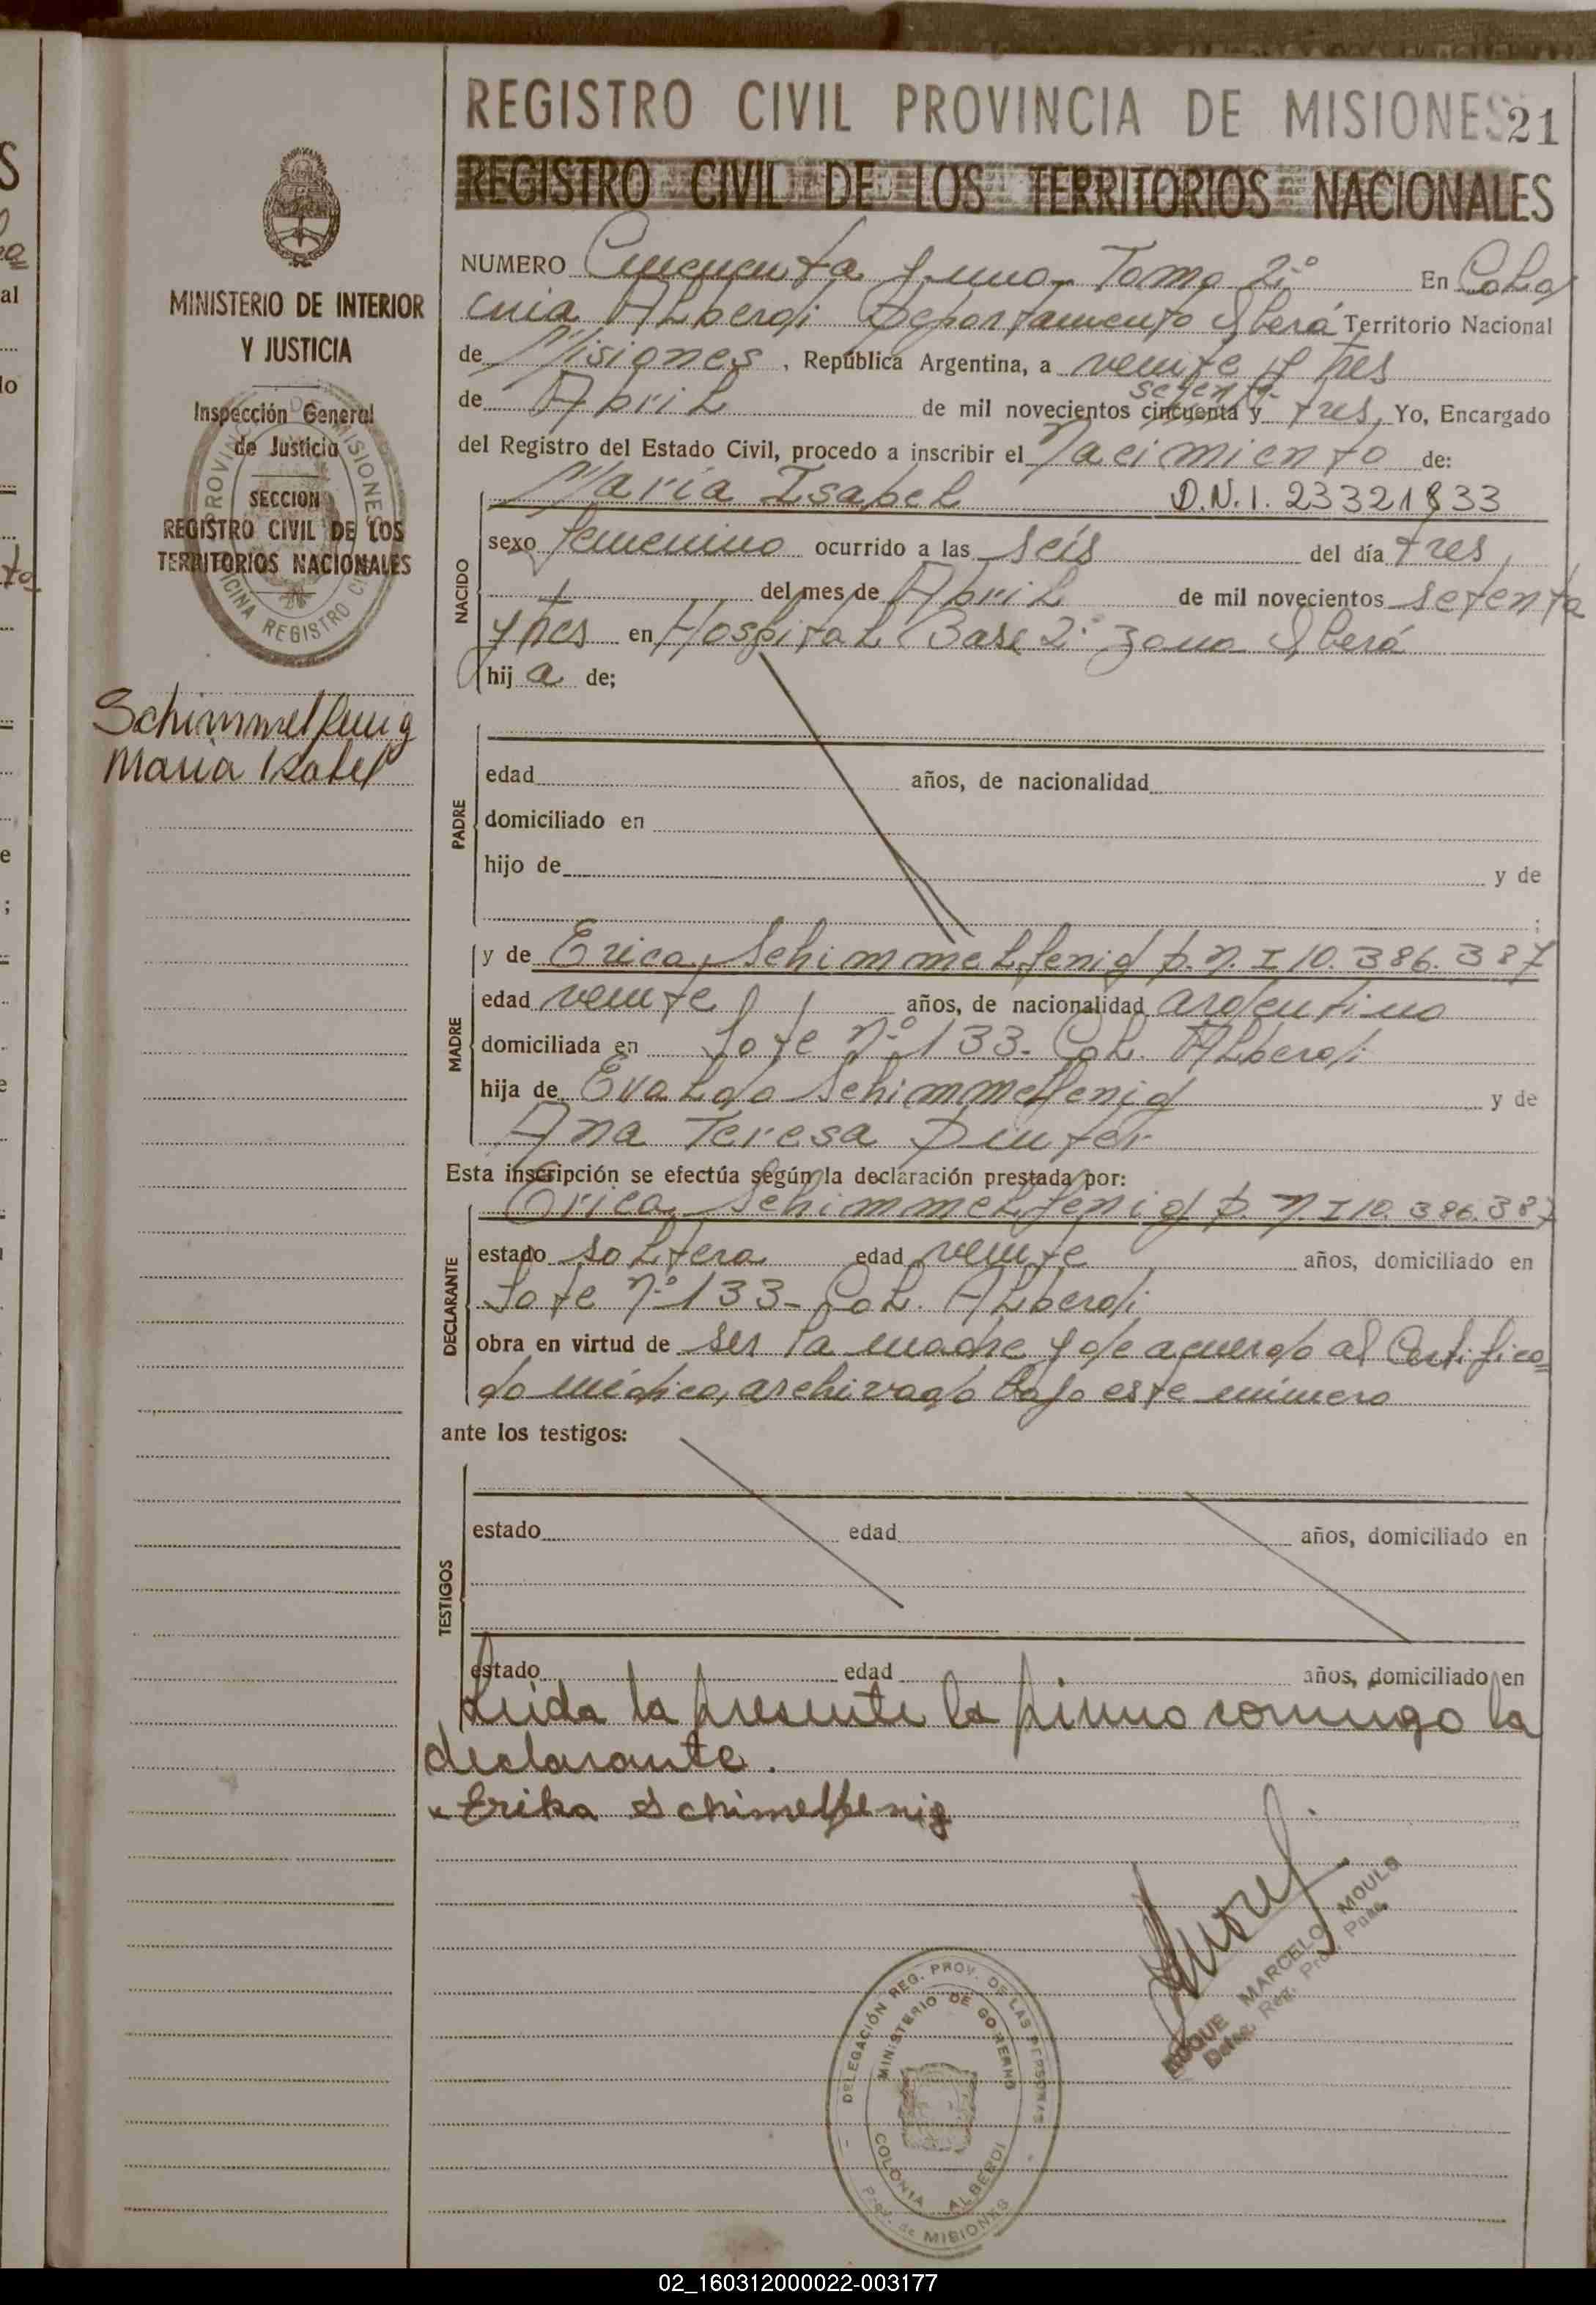 REGISTRO CIVIL PROVINCIA DE MISIONES 21
REGISTRO CIVIL DE LOS TERRITORIOS NACIONALES
MINISTERIO DE INTERIOR
Y JUSTICIA
Inspección General
de Justicia
SECCION
REGISTRO CIVIL DE LOS
TERRITORIOS NACIONALES
PROVINCIA DE MISIONES
OFICINA REGISTRO CIVIL
Schimmelfenig
Maria Isabel
NUMERO Cincuenta y uno - Tomo 2º En Colo
nia Alberdi Departamento Oberá Territorio Nacional
de Misiones, República Argentina, a veinte y tres
setenta
de Abril de mil novecientos cincuenta y tres, Yo, Encargado
del Registro del Estado Civil, procedo a inscribir el Nacimiento de:
NACIDO
María Isabel D.N.I. 23321833
sexo femenino ocurrido a las seis del día tres,
del mes de Abril de mil novecientos setenta
y tres en Hospital Base 2º zona Oberá
hija de;
PADRE
edad años, de nacionalidad
domiciliado en
hijo de y de
;
MADRE
y de Erica Schimmelfenig D.N.I 10.386.387
edad veinte años, de nacionalidad argentina
domiciliada en Lote Nº 133- Col. Alberdi
hija de Evaldo Schimmelfenig y de
Ana Teresa Dinter
Esta inscripción se efectúa según la declaración prestada por:
DECLARANTE
Erica Schimmelfenig D.N.I 10.386.387
estado soltera edad veinte años, domiciliado en
Lote Nº 133- Col. Alberdi
obra en virtud de ser la madre y de acuerdo al Certifica=
do médico, archivado bajo este número
ante los testigos:
TESTIGOS
estado edad años, domiciliado en
estado edad años, domiciliado en
Leida la presente la firmo conmigo la
declarante.
x Erika Schimelfenig
ROQUE MARCELO MOULO
Deleg. Reg. Prov. Pnas.
DELEGACIÓN REG. PROV. DE LAS PERSONAS
MINISTERIO DE GOBIERNO
COLONIA ALBERDI
Prov. de MISIONES
02_160312000022-003177